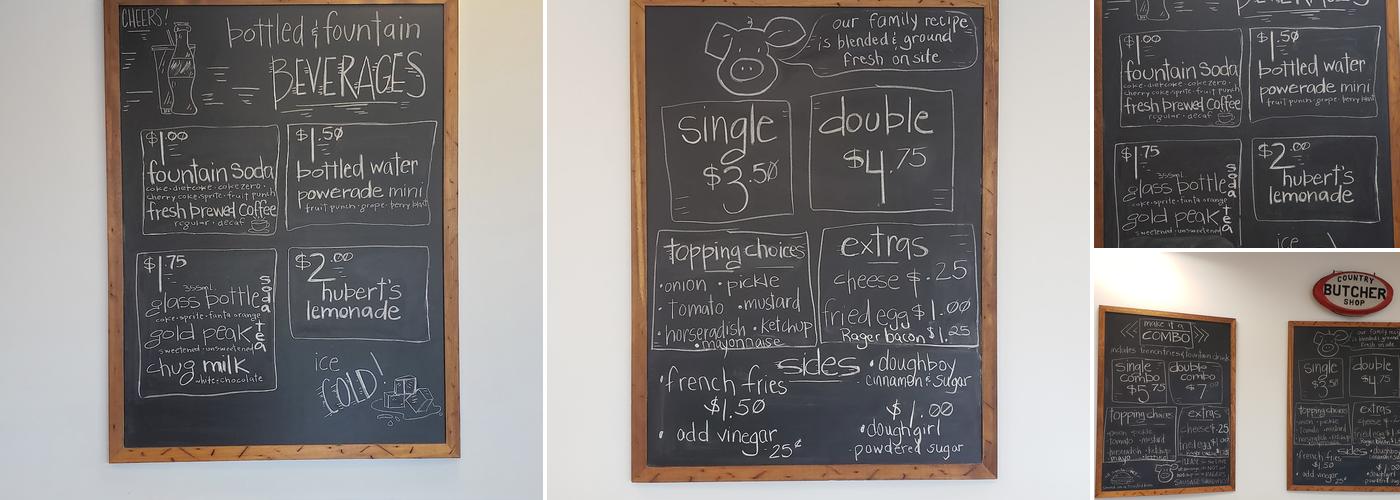 CHEERS!
bottled & fountain
BEVERAGES
$1.00
fountain soda
coke · diet coke · coke zero ·
cherry coke · sprite · fruit punch
fresh brewed coffee
regular · decaf
$1.50
bottled water
powerade mini
fruit punch · grape · berry blast
$1.75
355mL
glass bottle soda
coke · sprite · fanta orange
gold peak tea
sweetened · unsweetened
chug milk
white · chocolate
$2.00
hubert's
lemonade
ice
COLD!
our family recipe
is blended & ground
fresh onsite
single
$3.50
double
$4.75
topping choices
· onion · pickle
· tomato · mustard
· horseradish · ketchup
· mayonnaise
extras
cheese $.25
fried egg $1.00
Rager bacon $1.25
sides
· french fries
$1.50
· add vinegar
25¢
· doughboy
cinnamon & sugar
$1.00
· doughgirl
powdered sugar
$1.00
fountain soda
coke · diet coke · coke zero ·
cherry coke · sprite · fruit punch
fresh brewed coffee
regular · decaf
$1.50
bottled water
powerade mini
fruit punch · grape · berry blast
$1.75
355mL
glass bottle soda
coke · sprite · fanta orange
gold peak tea
sweetened · unsweetened
$2.00
hubert's
lemonade
ice
COUNTRY
BUTCHER
SHOP
make it a
COMBO
includes french fries & fountain drink
single
combo
$5.75
double
combo
$7.00
topping choices
· onion · pickle
· tomato · mustard
· horseradish · ketchup
mayo
extras
cheese $.25
fried egg $1.00
our family recipe
is blended & ground
fresh onsite
single
$3.50
double
$4.75
topping choices
· onion · pickle
· tomato · mustard
· horseradish · ketchup
extras
cheese $.25
fried egg
Rager bacon
sides
· french fries
$1.50
· add vinegar
25¢
· doughboy
cinnamon &
$1.00
· doughgirl
powdered